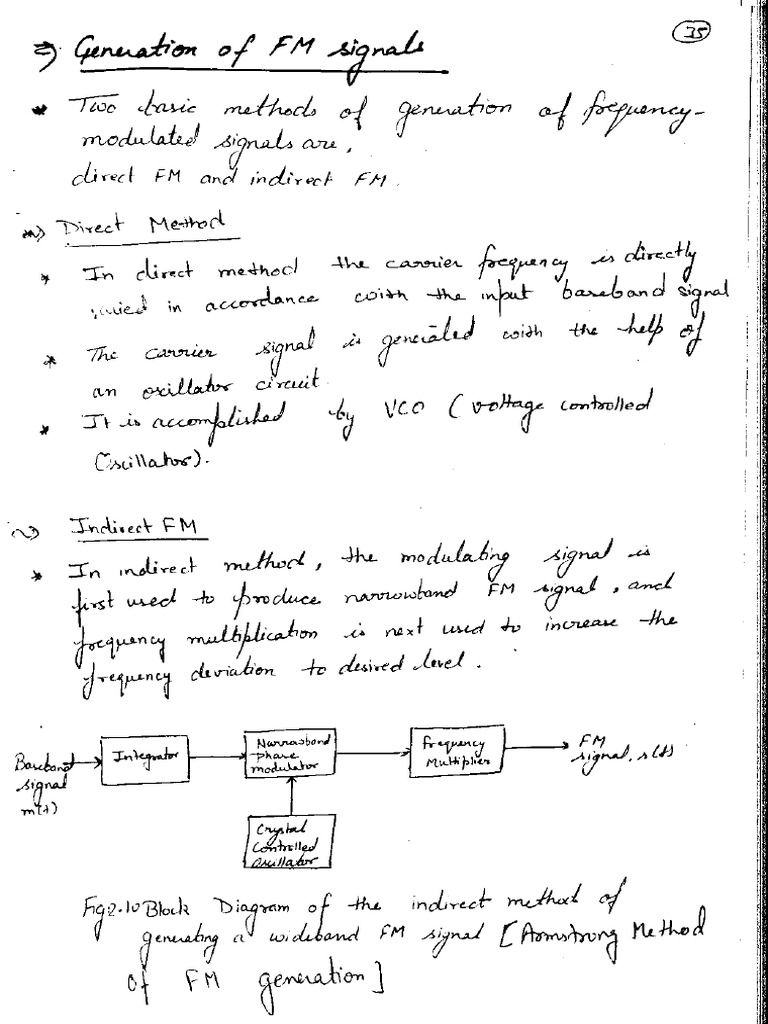 35
⇒ Generation of FM signals
* Two basic methods of generation of frequency-
modulated signals are,
direct FM and indirect FM.
Direct Method
* In direct method the carrier frequency is directly
varied in accordance with the input baseband signal
* The carrier signal is generated with the help of
an oscillator circuit.
* It is accomplished by VCO (Voltage controlled
Oscillator).
Indirect FM
* In indirect method, the modulating signal is
first used to produce narrowband FM signal, and
frequency multiplication is next used to increase the
frequency deviation to desired level.
Baseband
signal
m(t)
Integrator
Narrowband
phase
modulator
Frequency
Multiplier
FM
signal, s(t)
Crystal
Controlled
Oscillator
Fig 2.10 Block Diagram of the indirect method of
generating a wideband FM signal [Armstrong Method
of FM generation]